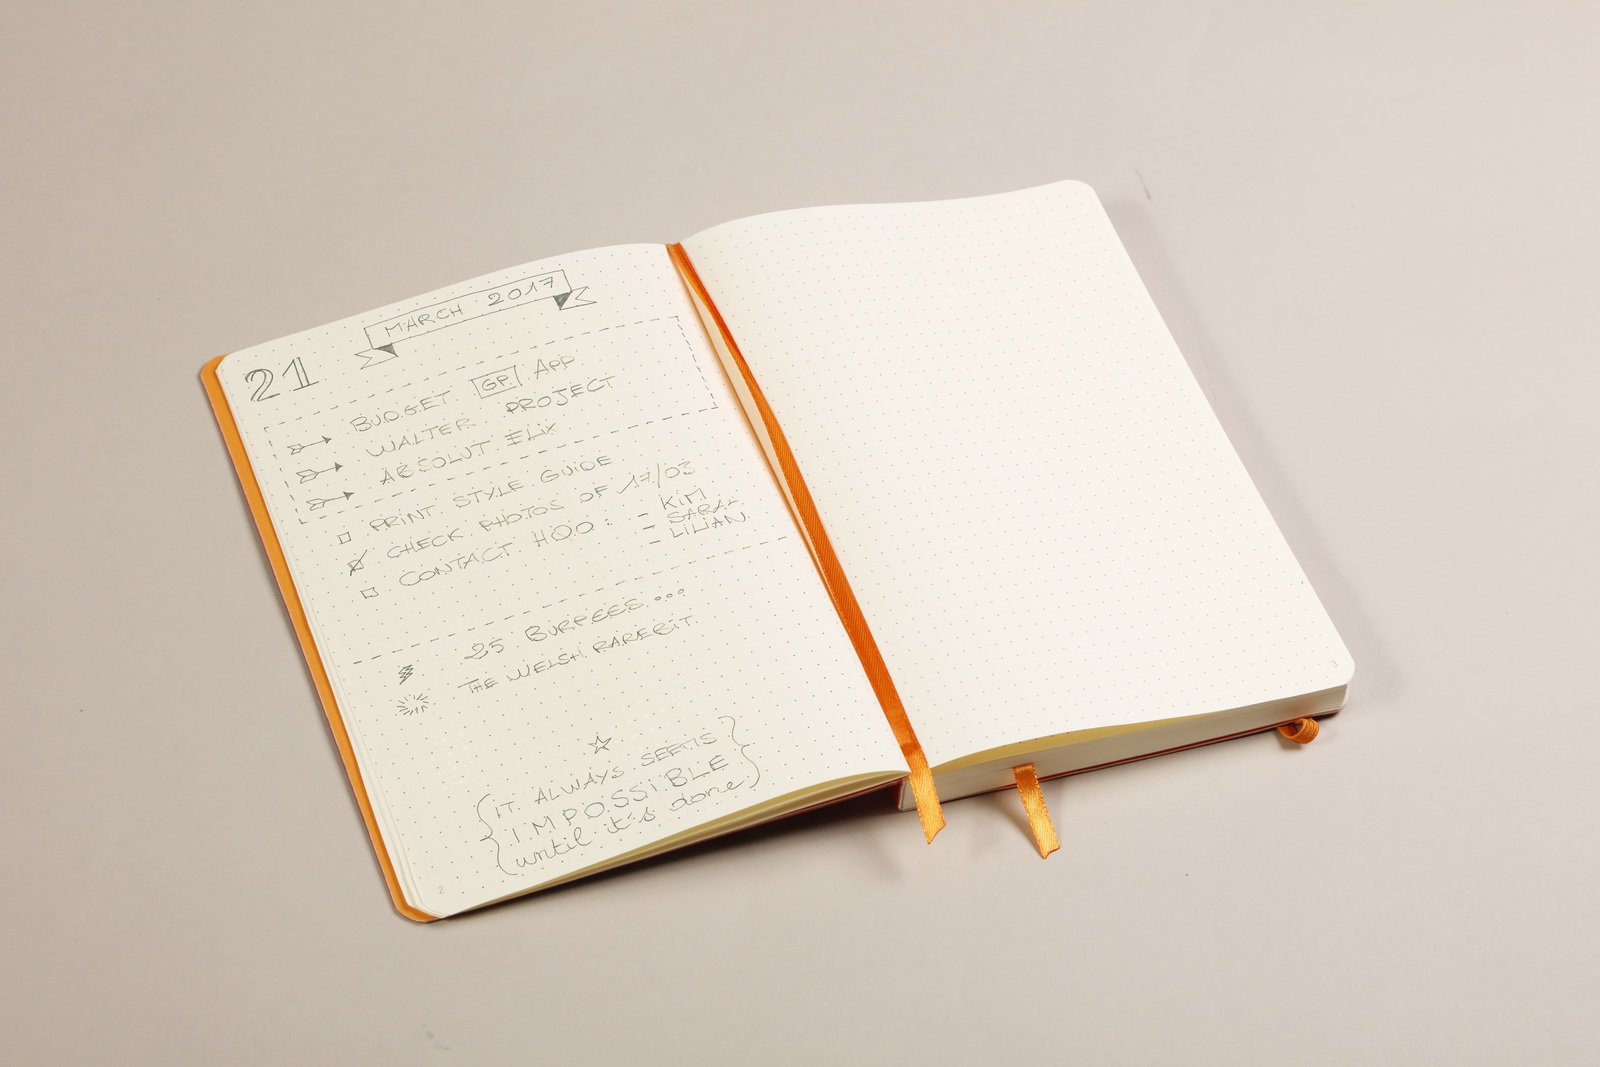 MARCH 2017
21
BUDGET GP. APP
WALTER PROJECT
ABSOLUT ELIX
PRINT STYLE GUIDE
CHECK PHOTOS OF 17/03
CONTACT HOO: - KIM
- SARAH
- LILIAN
25 BURPEES...
THE WELSH RAREBIT
IT ALWAYS SEEMS
IMPOSSIBLE
until it's done
2
3